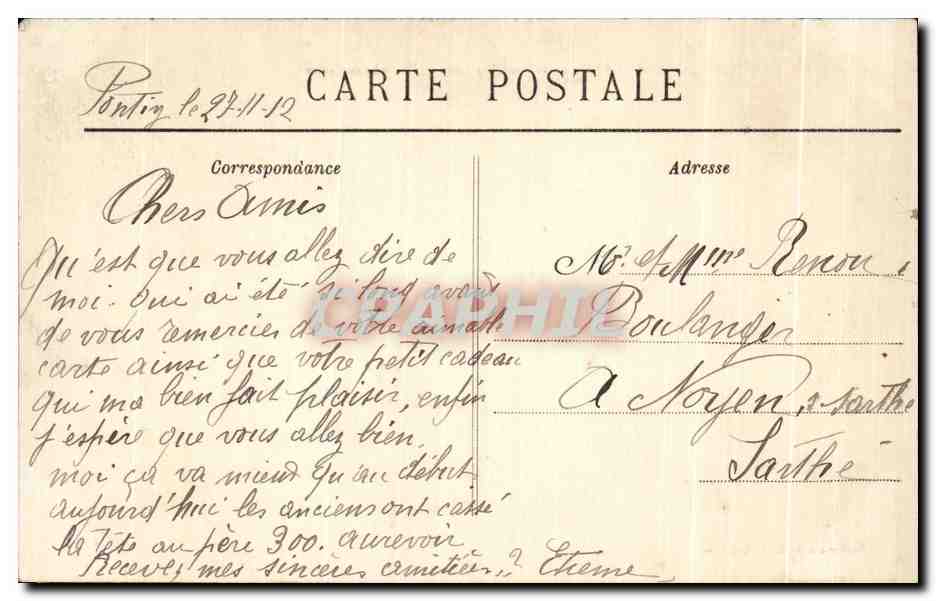 CARTE POSTALE
le 27-11-12
Correspondance
Adresse
Chers Amis
Qu'est que vous allez dire de
moi. qui ai été si long avant
de vous remercier de votre aimable
carte ainsi que votre petit cadeau
qui ma bien fait plaisir, enfin
j'espère que vous allez bien,
moi ça va mieux qu'au début.
aujourd'hui les anciens ont cassé
la tête au père 300. aurevoir
Recevez mes sincères amitiées
Mr. et Mme Renou
Boulanger
A Noyen s Sarthe
Sarthe
CPAPHIL